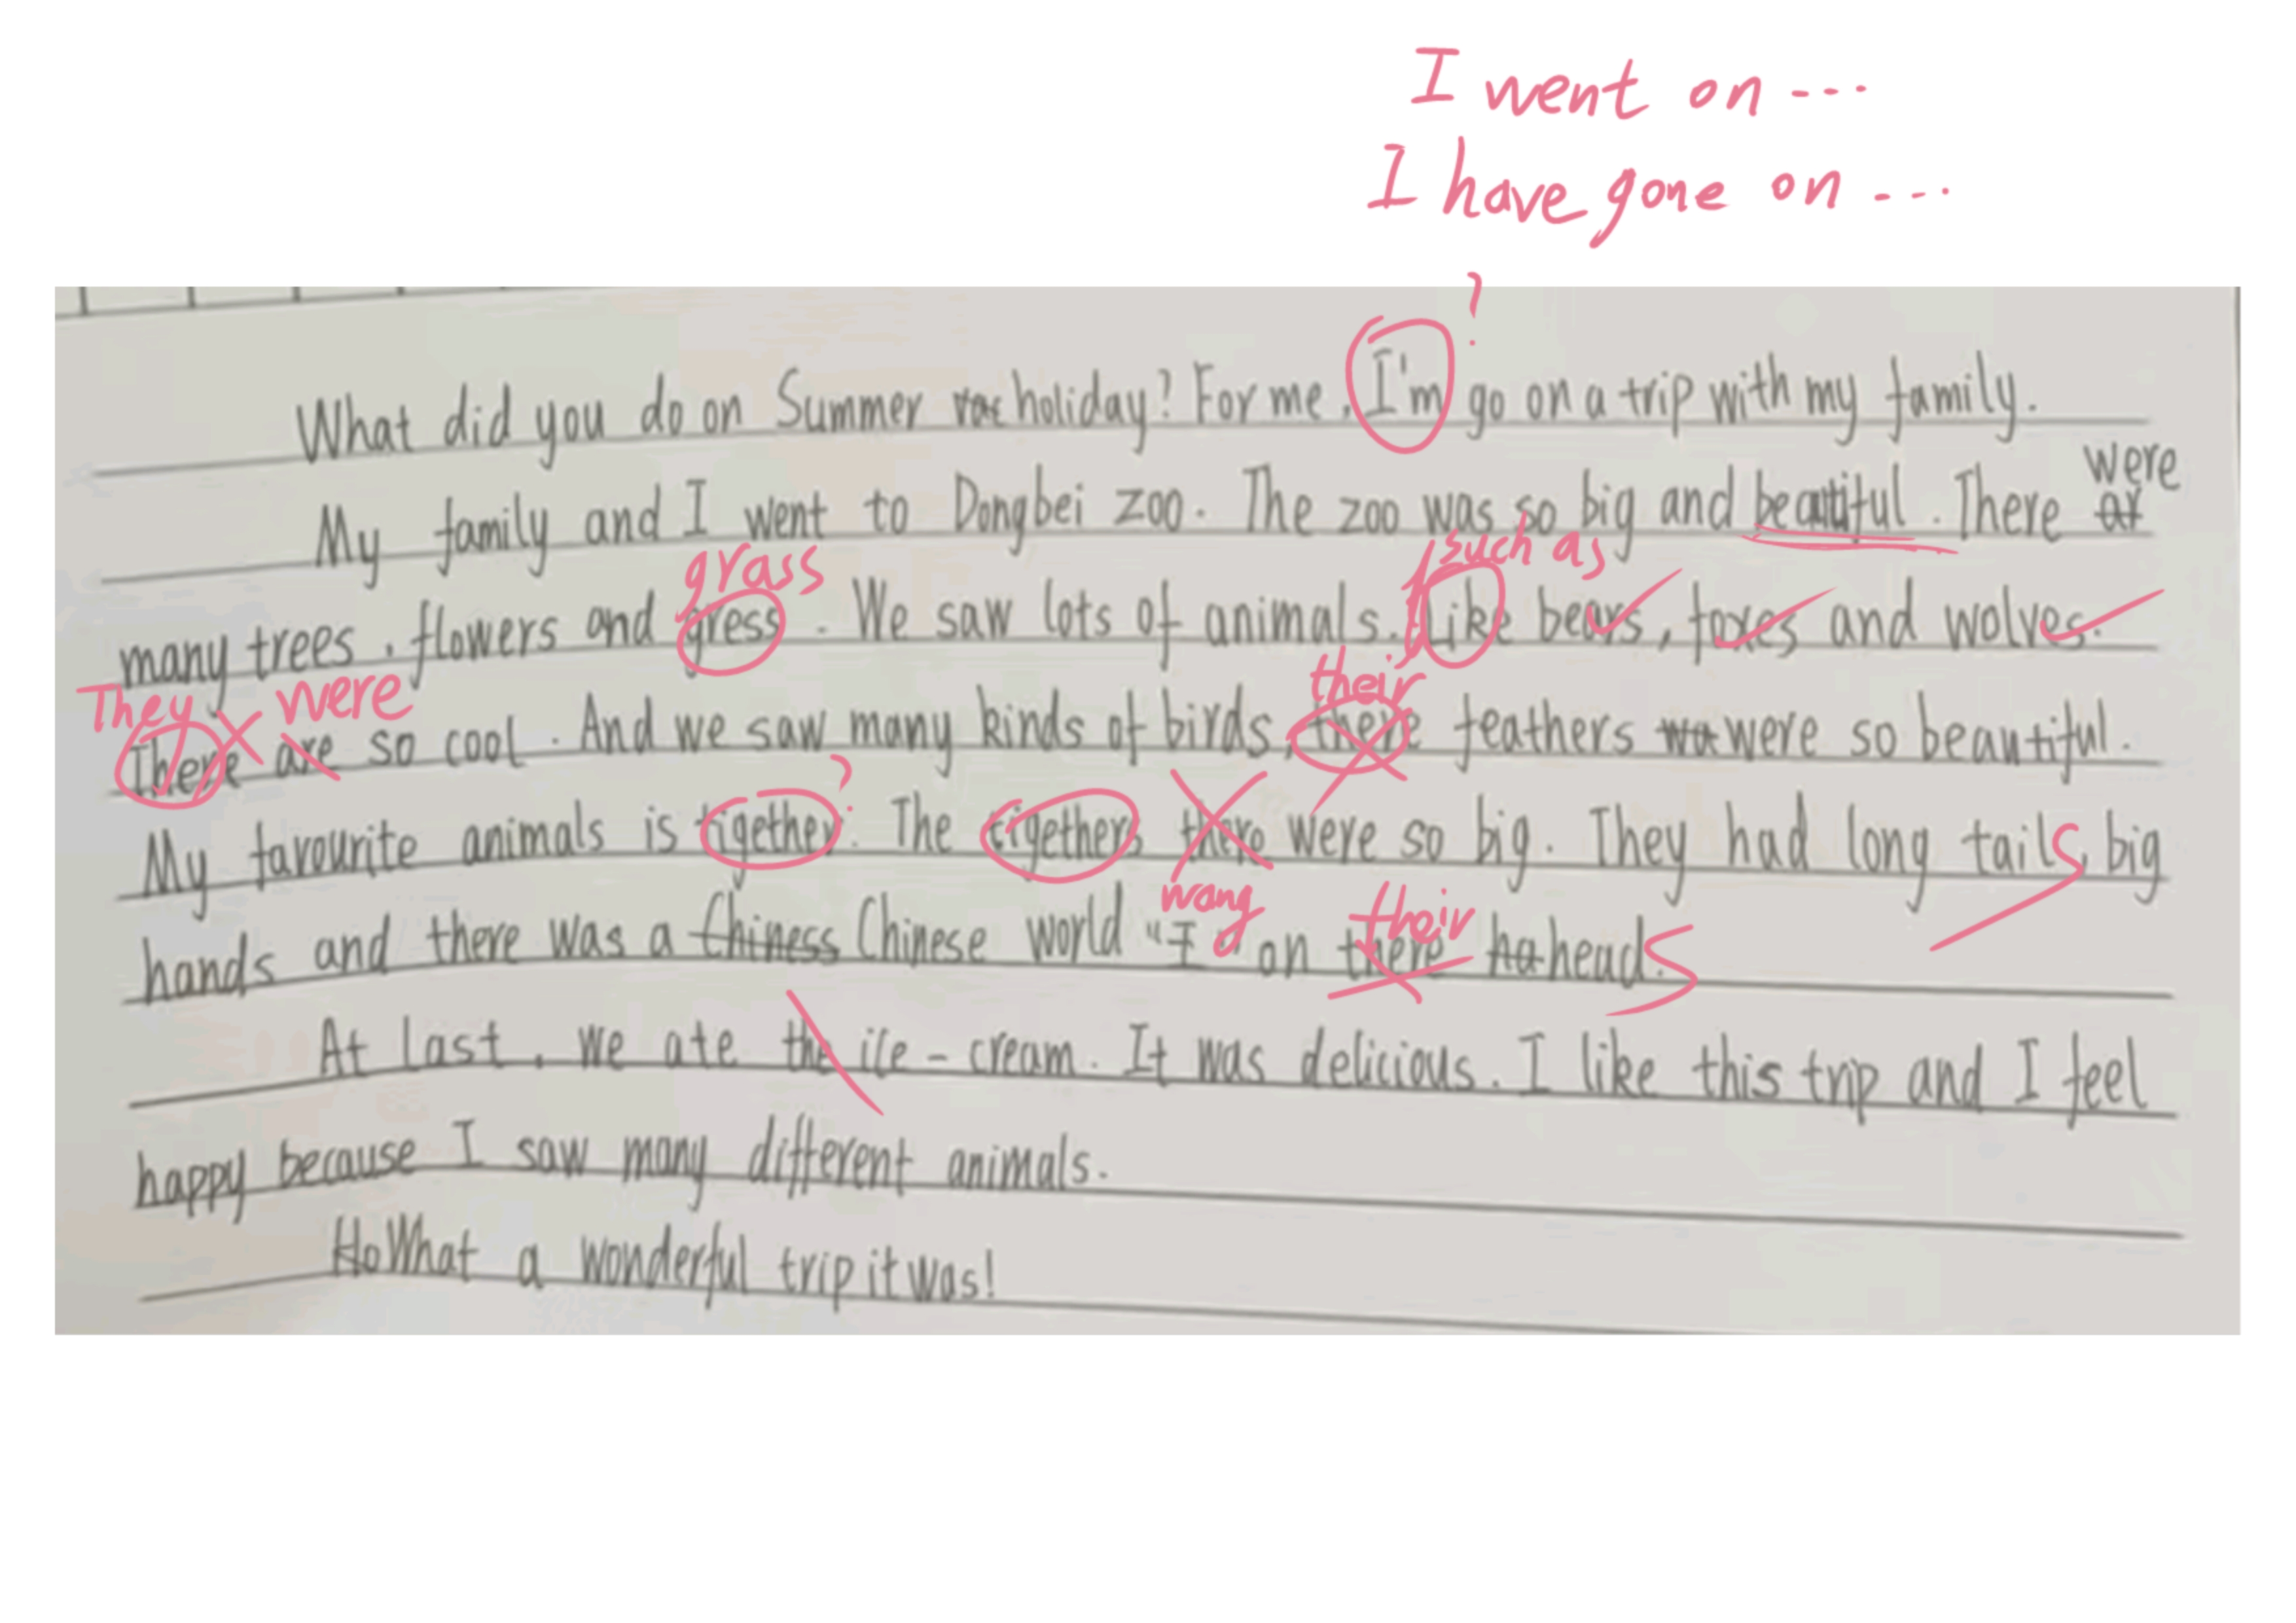 I went on ---
I have gone on ---
?
What did you do on Summer vac holiday? For me, I'm go on a trip with my family.
were
My family and I went to Dongbei zoo. The zoo was so big and beautiful. There ar
grass such as
many trees, flowers and gress. We saw lots of animals. Like bears, foxes and wolves.
They were their
There are so cool. And we saw many kinds of birds, there feathers wa were so beautiful.
?
My favourite animals is tigether. The tigethers there were so big. They had long tails, big
wang their
hands and there was a Chiness Chinese world "I" on there ha heads.
At last, we ate the ice-cream. It was delicious. I like this trip and I feel
happy because I saw many different animals.
Ho What a wonderful trip it was!